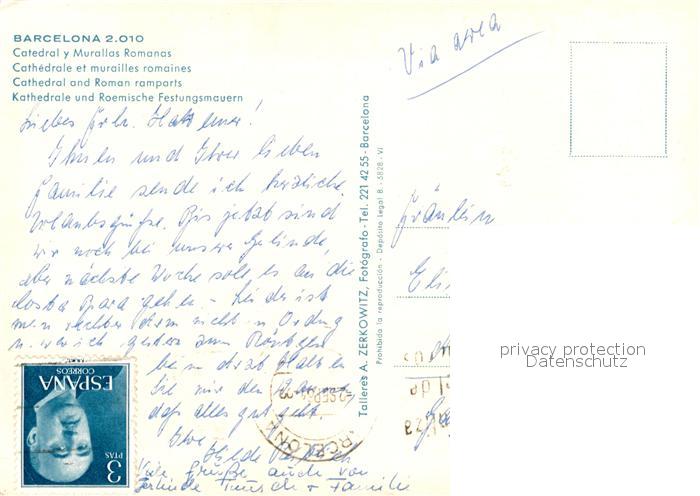 BARCELONA 2.010
Catedral y Murallas Romanas
Cathédrale et murailles romaines
Cathedral and Roman ramparts
Kathedrale und Roemische Festungsmauern
Via aerea
Liebes Frln.
Ihnen und Ihrer lieben
Familie sende ich herzliche
Urlaubsgrüße. Bis jetzt sind
wir noch bei unserer Gelinde,
aber nächste Woche soll es an die
Costa Brava gehen. - Leider ist
mein rechter Arm nicht in Ordnung
u. war ich gestern zum Röntgen
beim Arzt. Halten
Sie mir den Daumen,
daß alles gut geht.
Ihre
Hilde
Viele Grüße auch von
Gerlinde + Familie
Talleres A. ZERKOWITZ, Fotógrafo - Tel. 221 42 55 - Barcelona
Prohibida la reproducción - Depósito Legal B - 5828 - VI
Fräulein
privacy protection
Datenschutz
ESPAÑA
CORREOS
3 PTAS